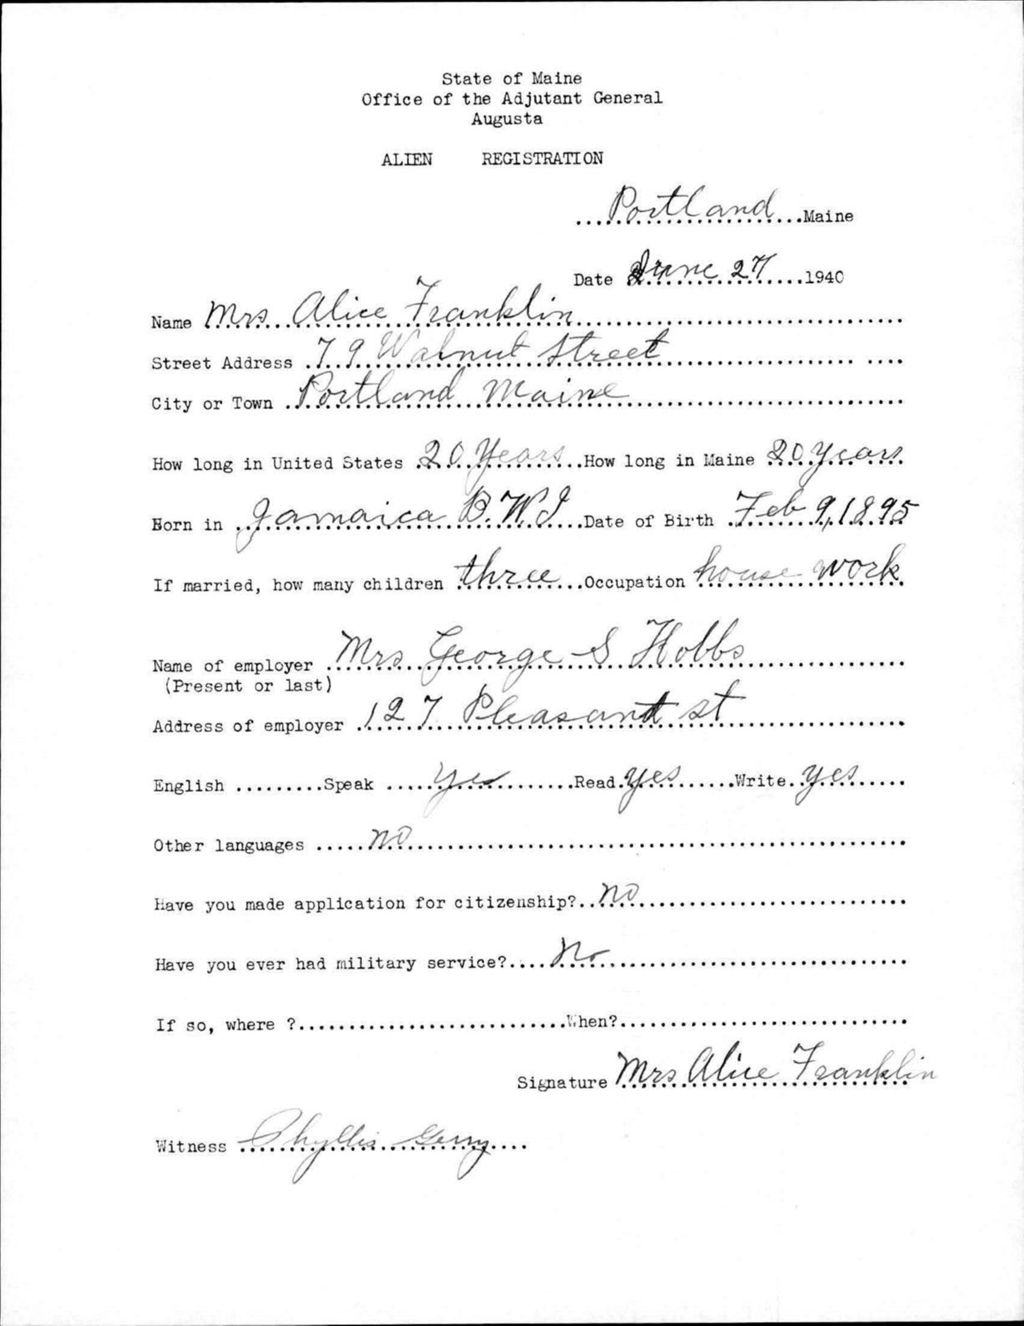 State of Maine
Office of the Adjutant General
Augusta
ALIEN REGISTRATION
...Portland...Maine
Date June 27....1940
Name Mrs Alice Franklin
Street Address 79 Walnut Street
City or Town Portland Maine
How long in United States 20 Years...How long in Maine 20 years
Born in Jamaica B.W.I...Date of Birth Feb 9, 1895
If married, how many children three...Occupation house work
Name of employer Mrs George S Hobbs
(Present or last)
Address of employer 127 Pleasant st
English .........Speak yes.........Read yes.......Write yes.....
Other languages .....no
Have you made application for citizenship?..no
Have you ever had military service?....No
If so, where ?..........................When?............................
Signature Mrs Alice Franklin
Witness Phyllis Gerry....